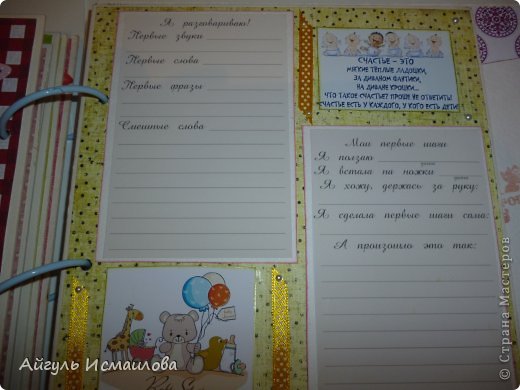 Я разговариваю!
Первые звуки
Первые слова
Первые фразы
Смешные слова
СЧАСТЬЕ – ЭТО
МЯГКИЕ ТЁПЛЫЕ ЛАДОШКИ,
ЗА ДИВАНОМ ФАНТИКИ,
НА ДИВАНЕ КРОШКИ...
ЧТО ТАКОЕ СЧАСТЬЕ? ПРОЩЕ НЕ ОТВЕТИТЬ!
СЧАСТЬЕ ЕСТЬ У КАЖДОГО, У КОГО ЕСТЬ ДЕТИ!
Мои первые шаги
Я ползаю
Я встала на ножки
Я хожу, держась за руку:
Я сделала первые шаги сама:
А произошло это так:
Айгуль Исмаилова
© Страна Мастеров